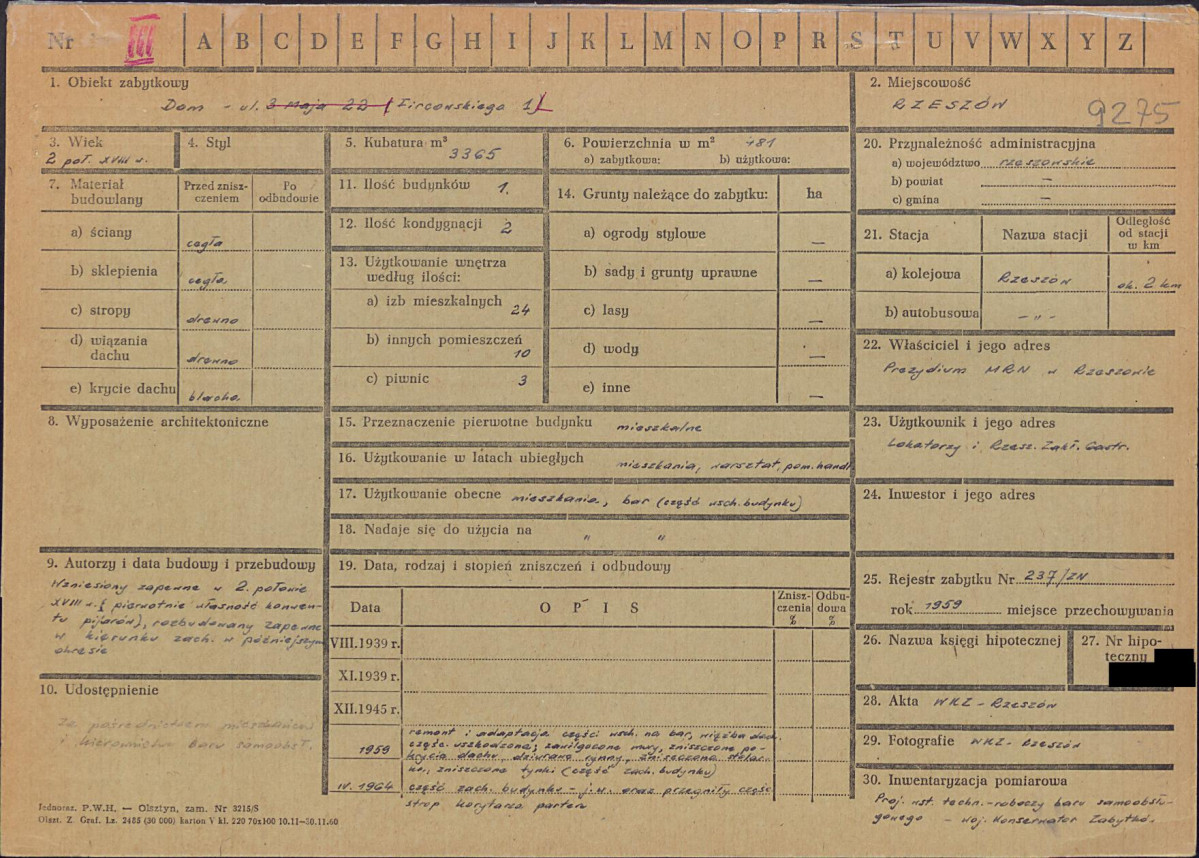 Nr III A B C D E F G H I J K L M N O P R S T U V W X Y Z
1. Obiekt zabytkowy
Dom - ul. 3 Maja 22 (Żwirowskiego 1)
2. Miejscowość
RZESZÓW
9275
3. Wiek
2 poł. XVIII w.
4. Styl
5. Kubatura m³
3365
6. Powierzchnia w m² 481
a) zabytkowa: b) użytkowa:
20. Przynależność administracyjna
a) województwo rzeszowskie
b) powiat —
c) gmina —
7. Materiał budowlany
Przed znisz-
czeniem
Po
odbudowie
a) ściany cegła
b) sklepienia cegła
c) stropy drewno
d) wiązania
dachu drewno
e) krycie dachu blacha
11. Ilość budynków 1.
12. Ilość kondygnacji 2
13. Użytkowanie wnętrza
według ilości:
a) izb mieszkalnych 24
b) innych pomieszczeń 10
c) piwnic 3
14. Grunty należące do zabytku: ha
a) ogrody stylowe —
b) sady i grunty uprawne —
c) lasy —
d) wody —
e) inne —
21. Stacja Nazwa stacji
Odległość
od stacji
w km
a) kolejowa Rzeszów ok. 2 km
b) autobusowa - „ -
22. Właściciel i jego adres
Prezydium MRN w Rzeszowie
8. Wyposażenie architektoniczne
15. Przeznaczenie pierwotne budynku mieszkalne
16. Użytkowanie w latach ubiegłych mieszkania, warsztat, pom. handl.
17. Użytkowanie obecne mieszkania, bar (część wsch. budynku)
18. Nadaje się do użycia na „ „
23. Użytkownik i jego adres
Lokatorzy i Rzesz. Zakł. Gastr.
24. Inwestor i jego adres
9. Autorzy i data budowy i przebudowy
Wzniesiony zapewne w 2. połowie
XVIII w. (pierwotnie własność konwen-
tu pijarów), rozbudowany zapewne
w kierunku zach. w późniejszym
okresie
10. Udostępnienie
Za pośrednictwem mieszkańców
i kierownictwa baru samoobsł.
19. Data, rodzaj i stopień zniszczeń i odbudowy
Data OPIS
Znisz-
czenia
%
Odbu-
dowa
%
VIII.1939 r.
XI.1939 r.
XII.1945 r.
1959 remont i adaptacja części wsch. na bar, więźba dach.
częśc. uszkodzona, zawilgocone mury, zniszczone po-
krycia dachu, dziurawe rynny, zniszczona stolar-
ka, zniszczone tynki (część zach. budynku)
IV. 1964 część zach. budynku - j.w. oraz przegniły częśc.
strop korytarza parteru
25. Rejestr zabytku Nr 237/ZN
rok 1959 miejsce przechowywania
26. Nazwa księgi hipotecznej
27. Nr hipo-
teczny
28. Akta WKZ - Rzeszów
29. Fotografie WKZ - Rzeszów
30. Inwentaryzacja pomiarowa
Proj. wst. techn.-roboczy baru samoobsłu-
gowego - Woj. Konserwator Zabytków.
Jednoraz. P.W.H. — Olsztyn, zam. Nr 3215/S
Olszt. Z. Graf. Lz. 2485 (30 000) karton V kl. 220 70x100 10.11—30.11.60